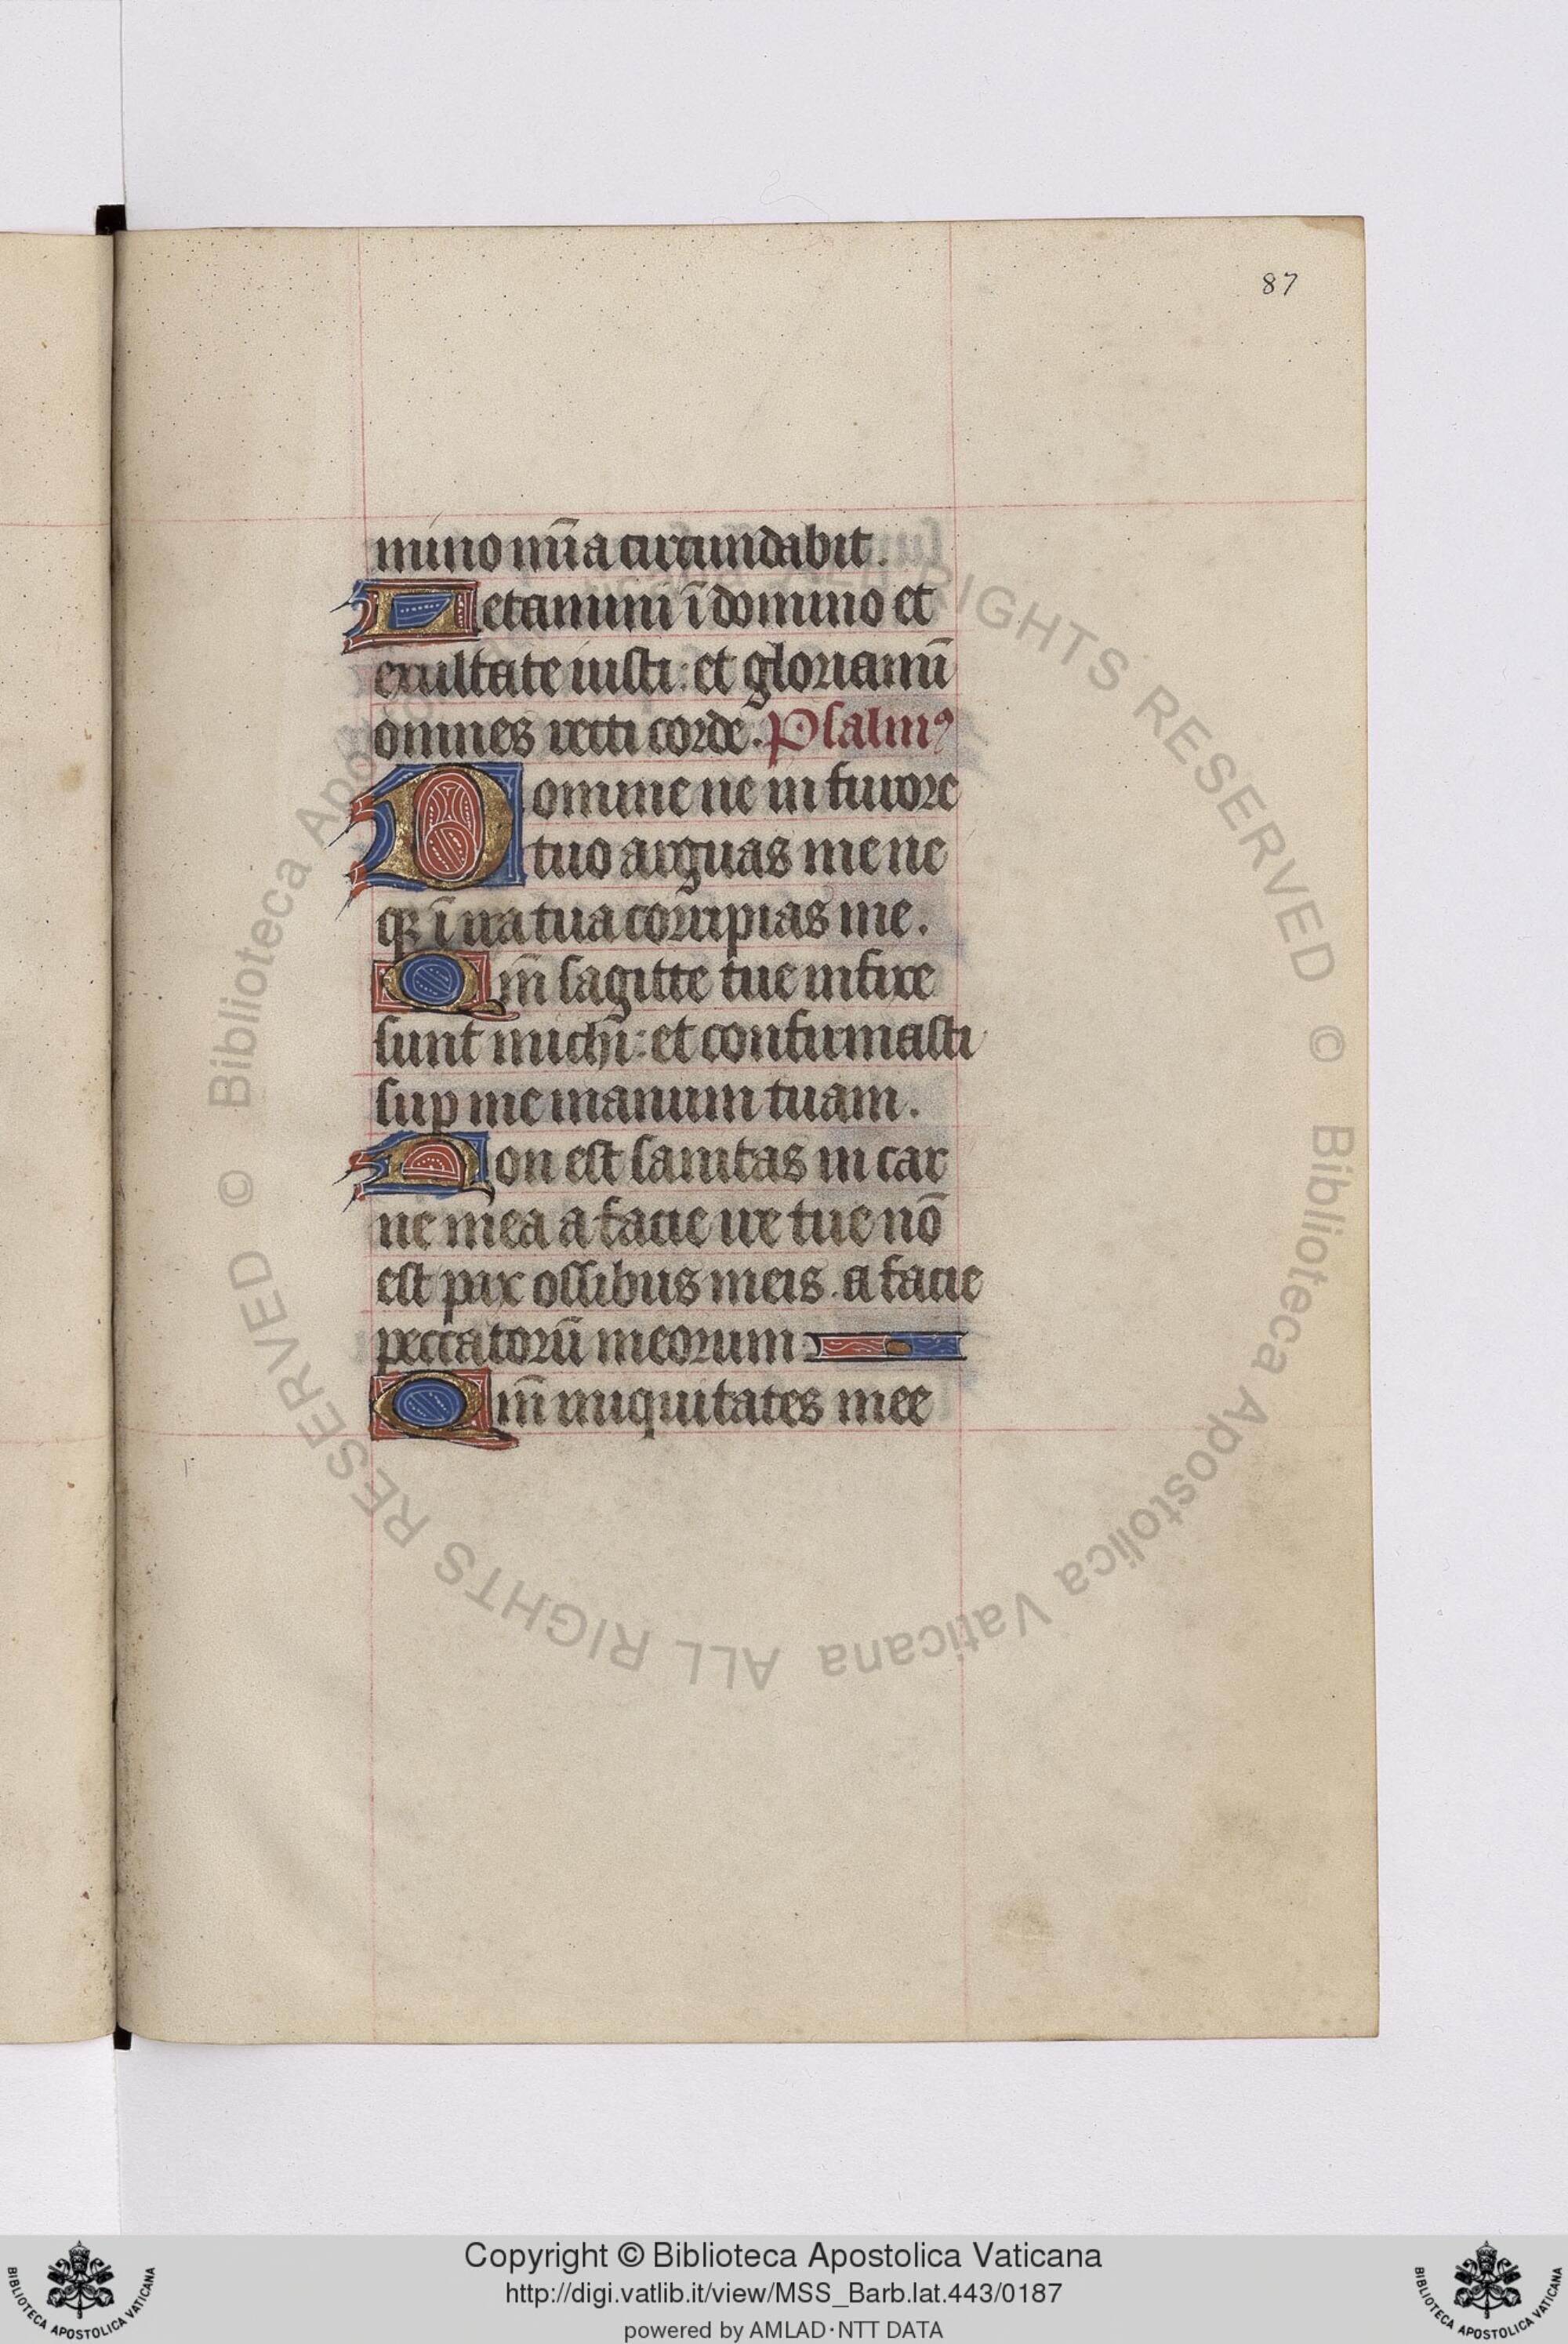 87
mino mīa circundabit.
Letamini ī domino et
exultate iusti: et gloriamī
omnes recti corde. Psalmꝰ
Domine ne in furore
tuo arguas me ne
qꝫ ī ira tua corripias me.
Qm̄ sagitte tue infixe
sunt michi: et confirmasti
suꝑ me manum tuam.
Non est sanitas in car
ne mea a facie ire tue nō
est pax ossibus meis. a facie
peccatorū meorum:
Qm̄ iniquitates mee
© Biblioteca Apostolica Vaticana ALL RIGHTS RESERVED © Biblioteca Apostolica Vaticana ALL RIGHTS RESERVED
Copyright © Biblioteca Apostolica Vaticana
http://digi.vatlib.it/view/MSS_Barb.lat.443/0187
powered by AMLAD·NTT DATA
BIBLIOTECA APOSTOLICA VATICANA
BIBLIOTECA APOSTOLICA VATICANA